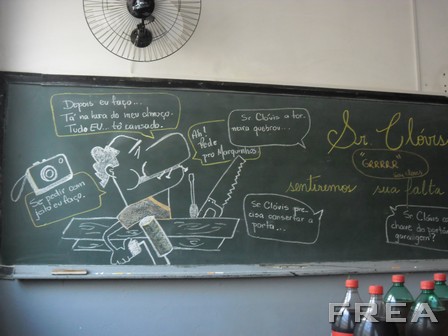 Depois eu faço...
Tá na hora do meu almoço.
Tudo EU... tô cansado.
Ah!
Pede
pro Marquinhos
Se pedir com
jeito eu faço.
Sr Clóvis a tor-
neira quebrou...
Sr Clóvis pre-
cisa consertar a
porta...
Sr Clóvis
"GRRRRR"
sentiremos sua falta
Sr Clóvis
chave do portão
garagem?
FREA